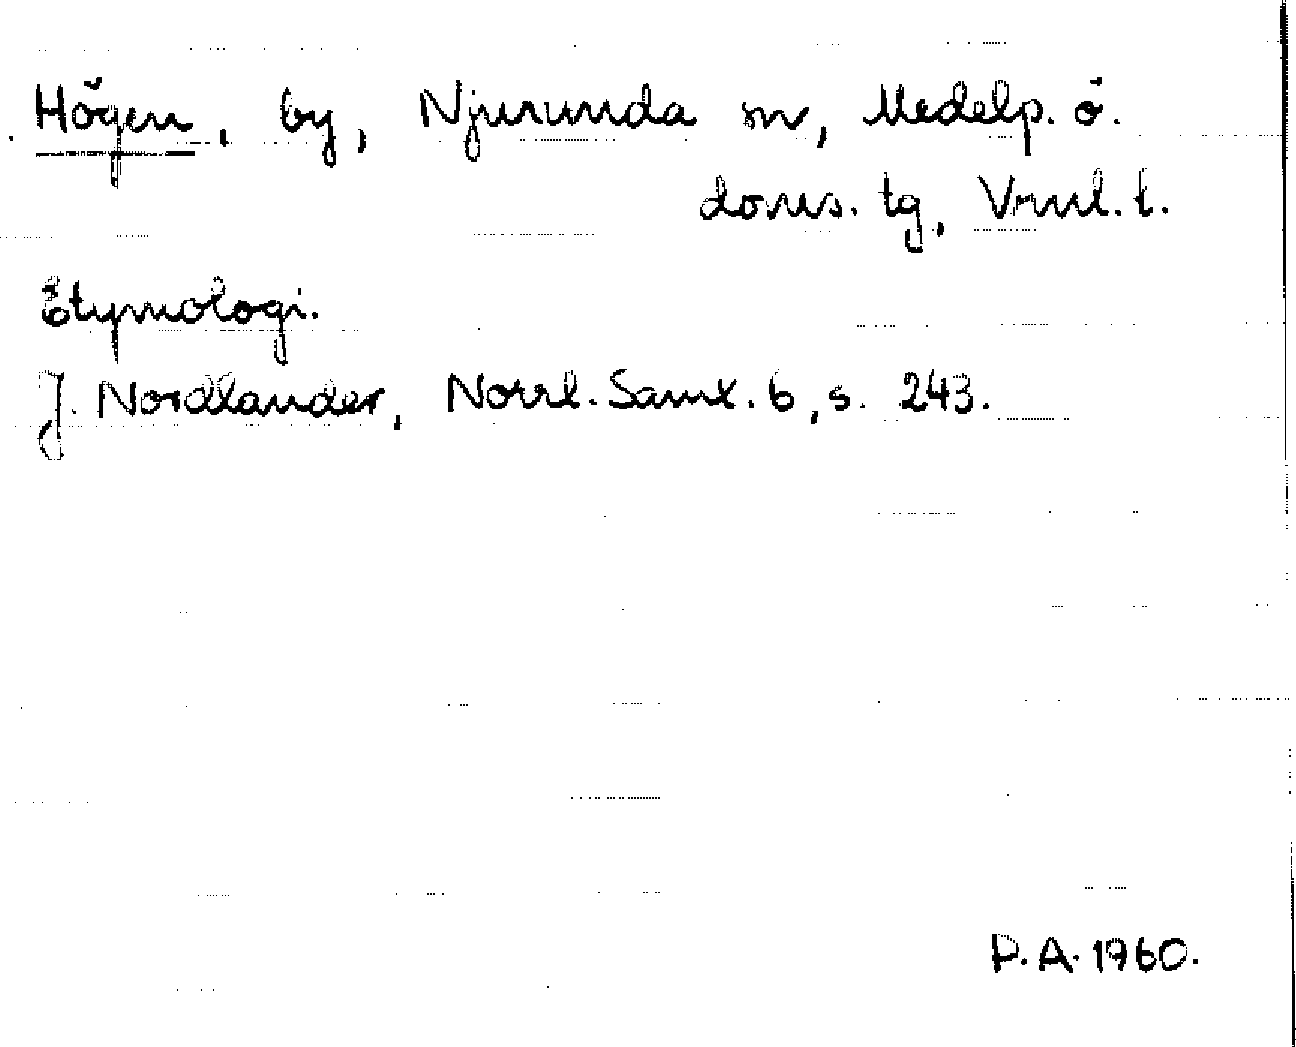 Högen, by, Njurunda sn, Medelp. ö.
doms. tg, Vrnl. l.
Etymologi.
J. Nordlander, Norrl. Saml. 6, s. 243.
P.A. 1960.